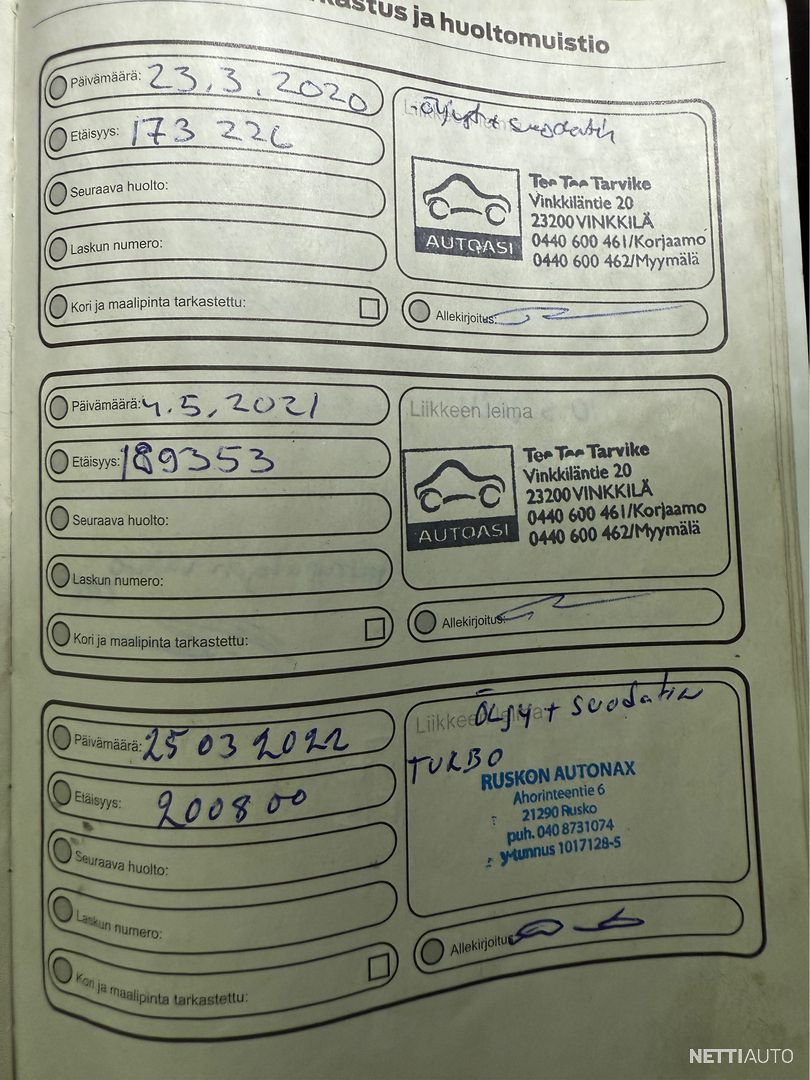 huoltomuistio
Päivämäärä: 23.3.2020
Etäisyys: 173 226
Seuraava huolto:
Laskun numero:
Kori ja maalipinta tarkastettu:
suodatin
AUTOASI
Tee Tee Tarvike
Vinkkiläntie 20
23200 VINKKILÄ
0440 600 461/Korjaamo
0440 600 462/Myymälä
Allekirjoitus:
Päivämäärä: 4.5.2021
Etäisyys: 189353
Seuraava huolto:
Laskun numero:
Kori ja maalipinta tarkastettu:
Liikkeen leima
AUTOASI
Tee Tee Tarvike
Vinkkiläntie 20
23200 VINKKILÄ
0440 600 461/Korjaamo
0440 600 462/Myymälä
Allekirjoitus:
Päivämäärä: 25 03 2022
Etäisyys: 200800
Seuraava huolto:
Laskun numero:
Kori ja maalipinta tarkastettu:
Öljy + suodatin
Liikkeen leima
TURBO
RUSKON AUTONAX
Ahorinteentie 6
21290 Rusko
puh. 040 8731074
y-tunnus 1017128-5
Allekirjoitus:
NETTIAUTO